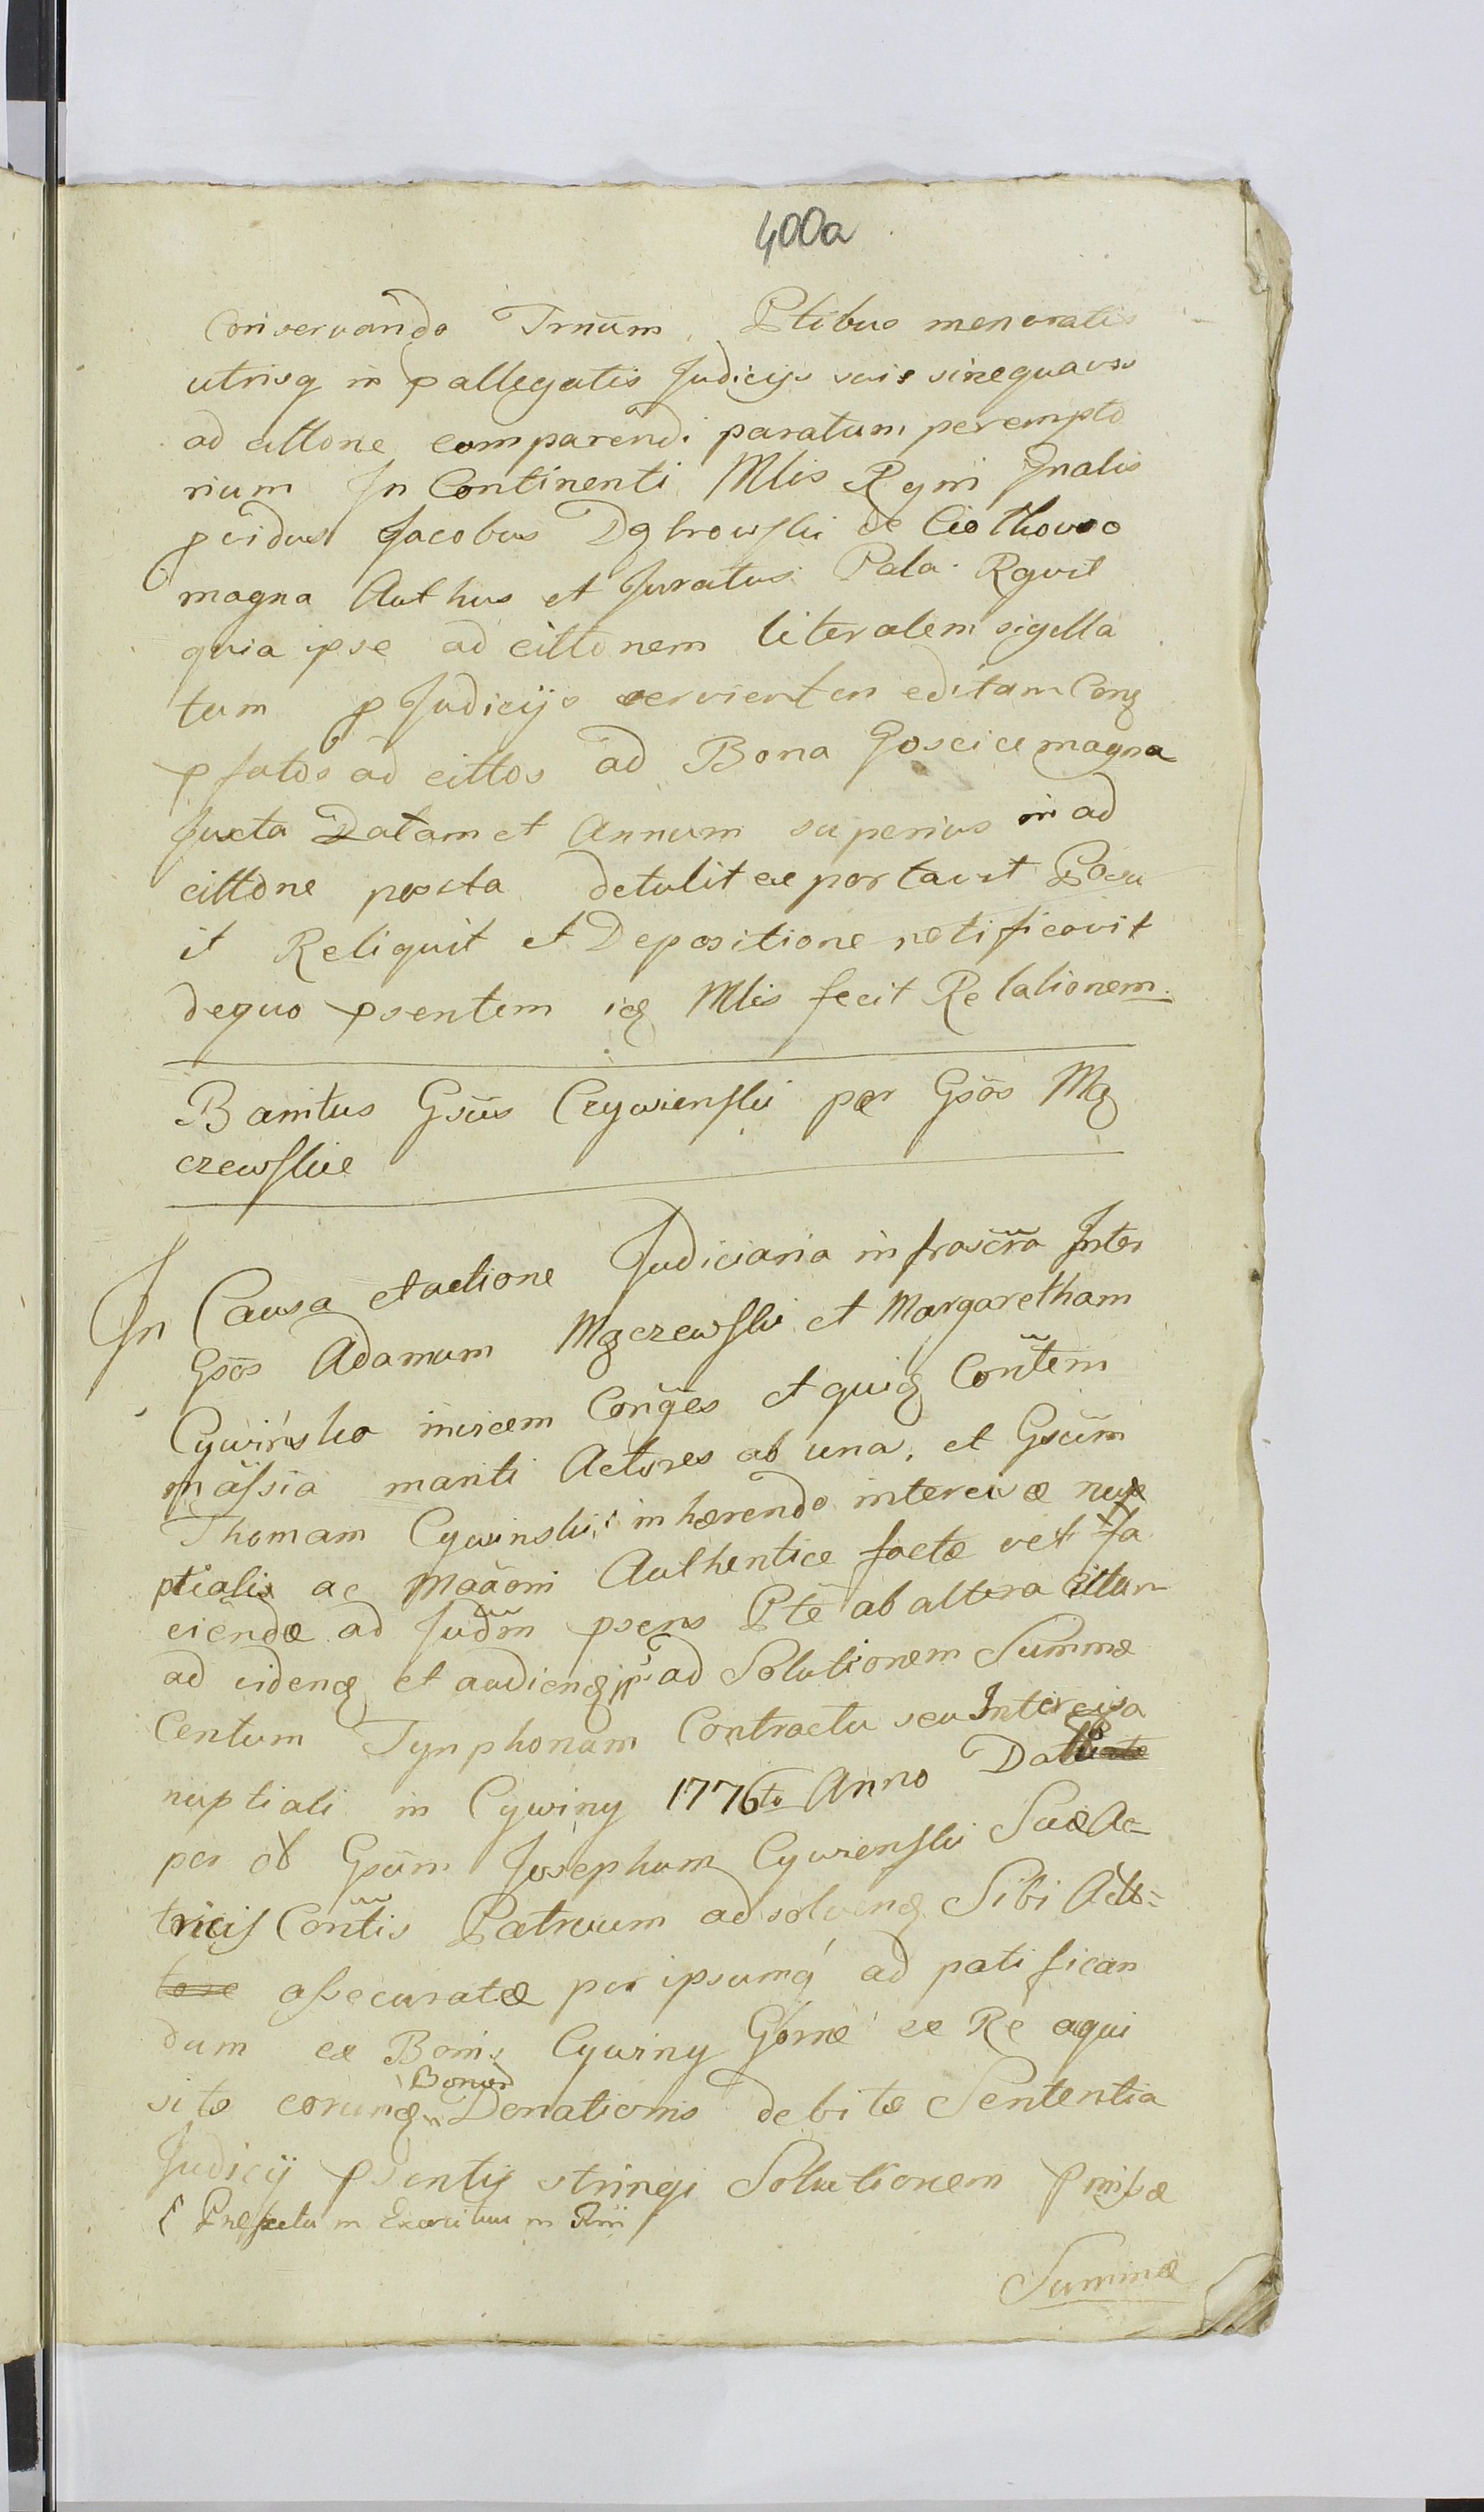 400a
Conservando Trnum. Ptibus menoratis
utrisq in pallegatis Judicijs suis sinequavis
ad cittone comparendi paratum perempto
rium In Continenti Mlis Rgni Gnalis
pvidus Jacobus Dąbrowski de Ciothowo
magna Authus et Juratus Pala. Rgvit
quia ipse ad cittonem literalem sigilla
tam p Judicijs servienten editam Conq
pfatos ad cittos ad Bona Goscice magna
Juxta Datam et Annum superius in ad
cittone poscta detulit ex portavit Posu
it Reliquit et Depositione notificavit
dequo psentem iq Mlis fecit Relationem.
Banitus Gsus Cywienski per Gsos Mą
czewskie
In Causa et actione Judiciaria infrascra Inter
Gsos Adamum Mączewski et Margaretham
Cywińsko invicem Conges et quiq Contem
in assia mariti Actores ab una, et Gsum
Thomam Cywinski inhærendo intercisæ nup
ptialis ac Maaoni Authentice factæ vel fa
ciendæ ad Judm psens Pte ab altera cittum
ad videnq et audienq ad Solutionem Summæ
Centum Tynphonum Contractu seu Intercisa
nuptiali in Cywiny 1776to Anno
per Gsum Josephum Cywienski Suæ Ac=
tricis Contis Patruum adsolvenq Sibi Act=
assecuratæ per ipsumq ad patifican
dum ex Bonis Cywiny Gornæ ex Re aqui
sitæ corumq Bonor Donationis debitæ Sententia
Judicij psentis stringi Solutionem pmissæ
Præfectu in Exercituu in Rni
Summæ